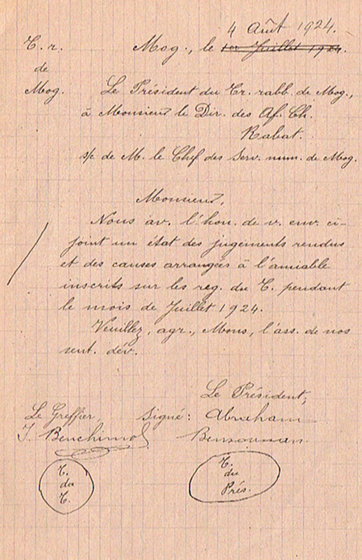 4 Août 1924.
T. r. Mog., le 1er Juillet 1924.
de
Mog. Le Président du Tr. rabb. de Mog.,
à Monsieur le Dir. des Af. Ch.
Rabat.
s/c de M. le Chef des Serv. mun. de Mog.
Monsieur,
Nous av. l'hon. de v. env. ci-
joint un état des jugements rendus
et des causes arrangées à l'amiable
inscrits sur les reg. du T. pendant
le mois de Juillet 1924.
Veuillez, agr., Mons, l'ass. de nos
sent. dév.
Le Président,
Le Greffier, Signé: Abraham
J. Benchimol Bensousan.
T. du T.
T. du Prés.